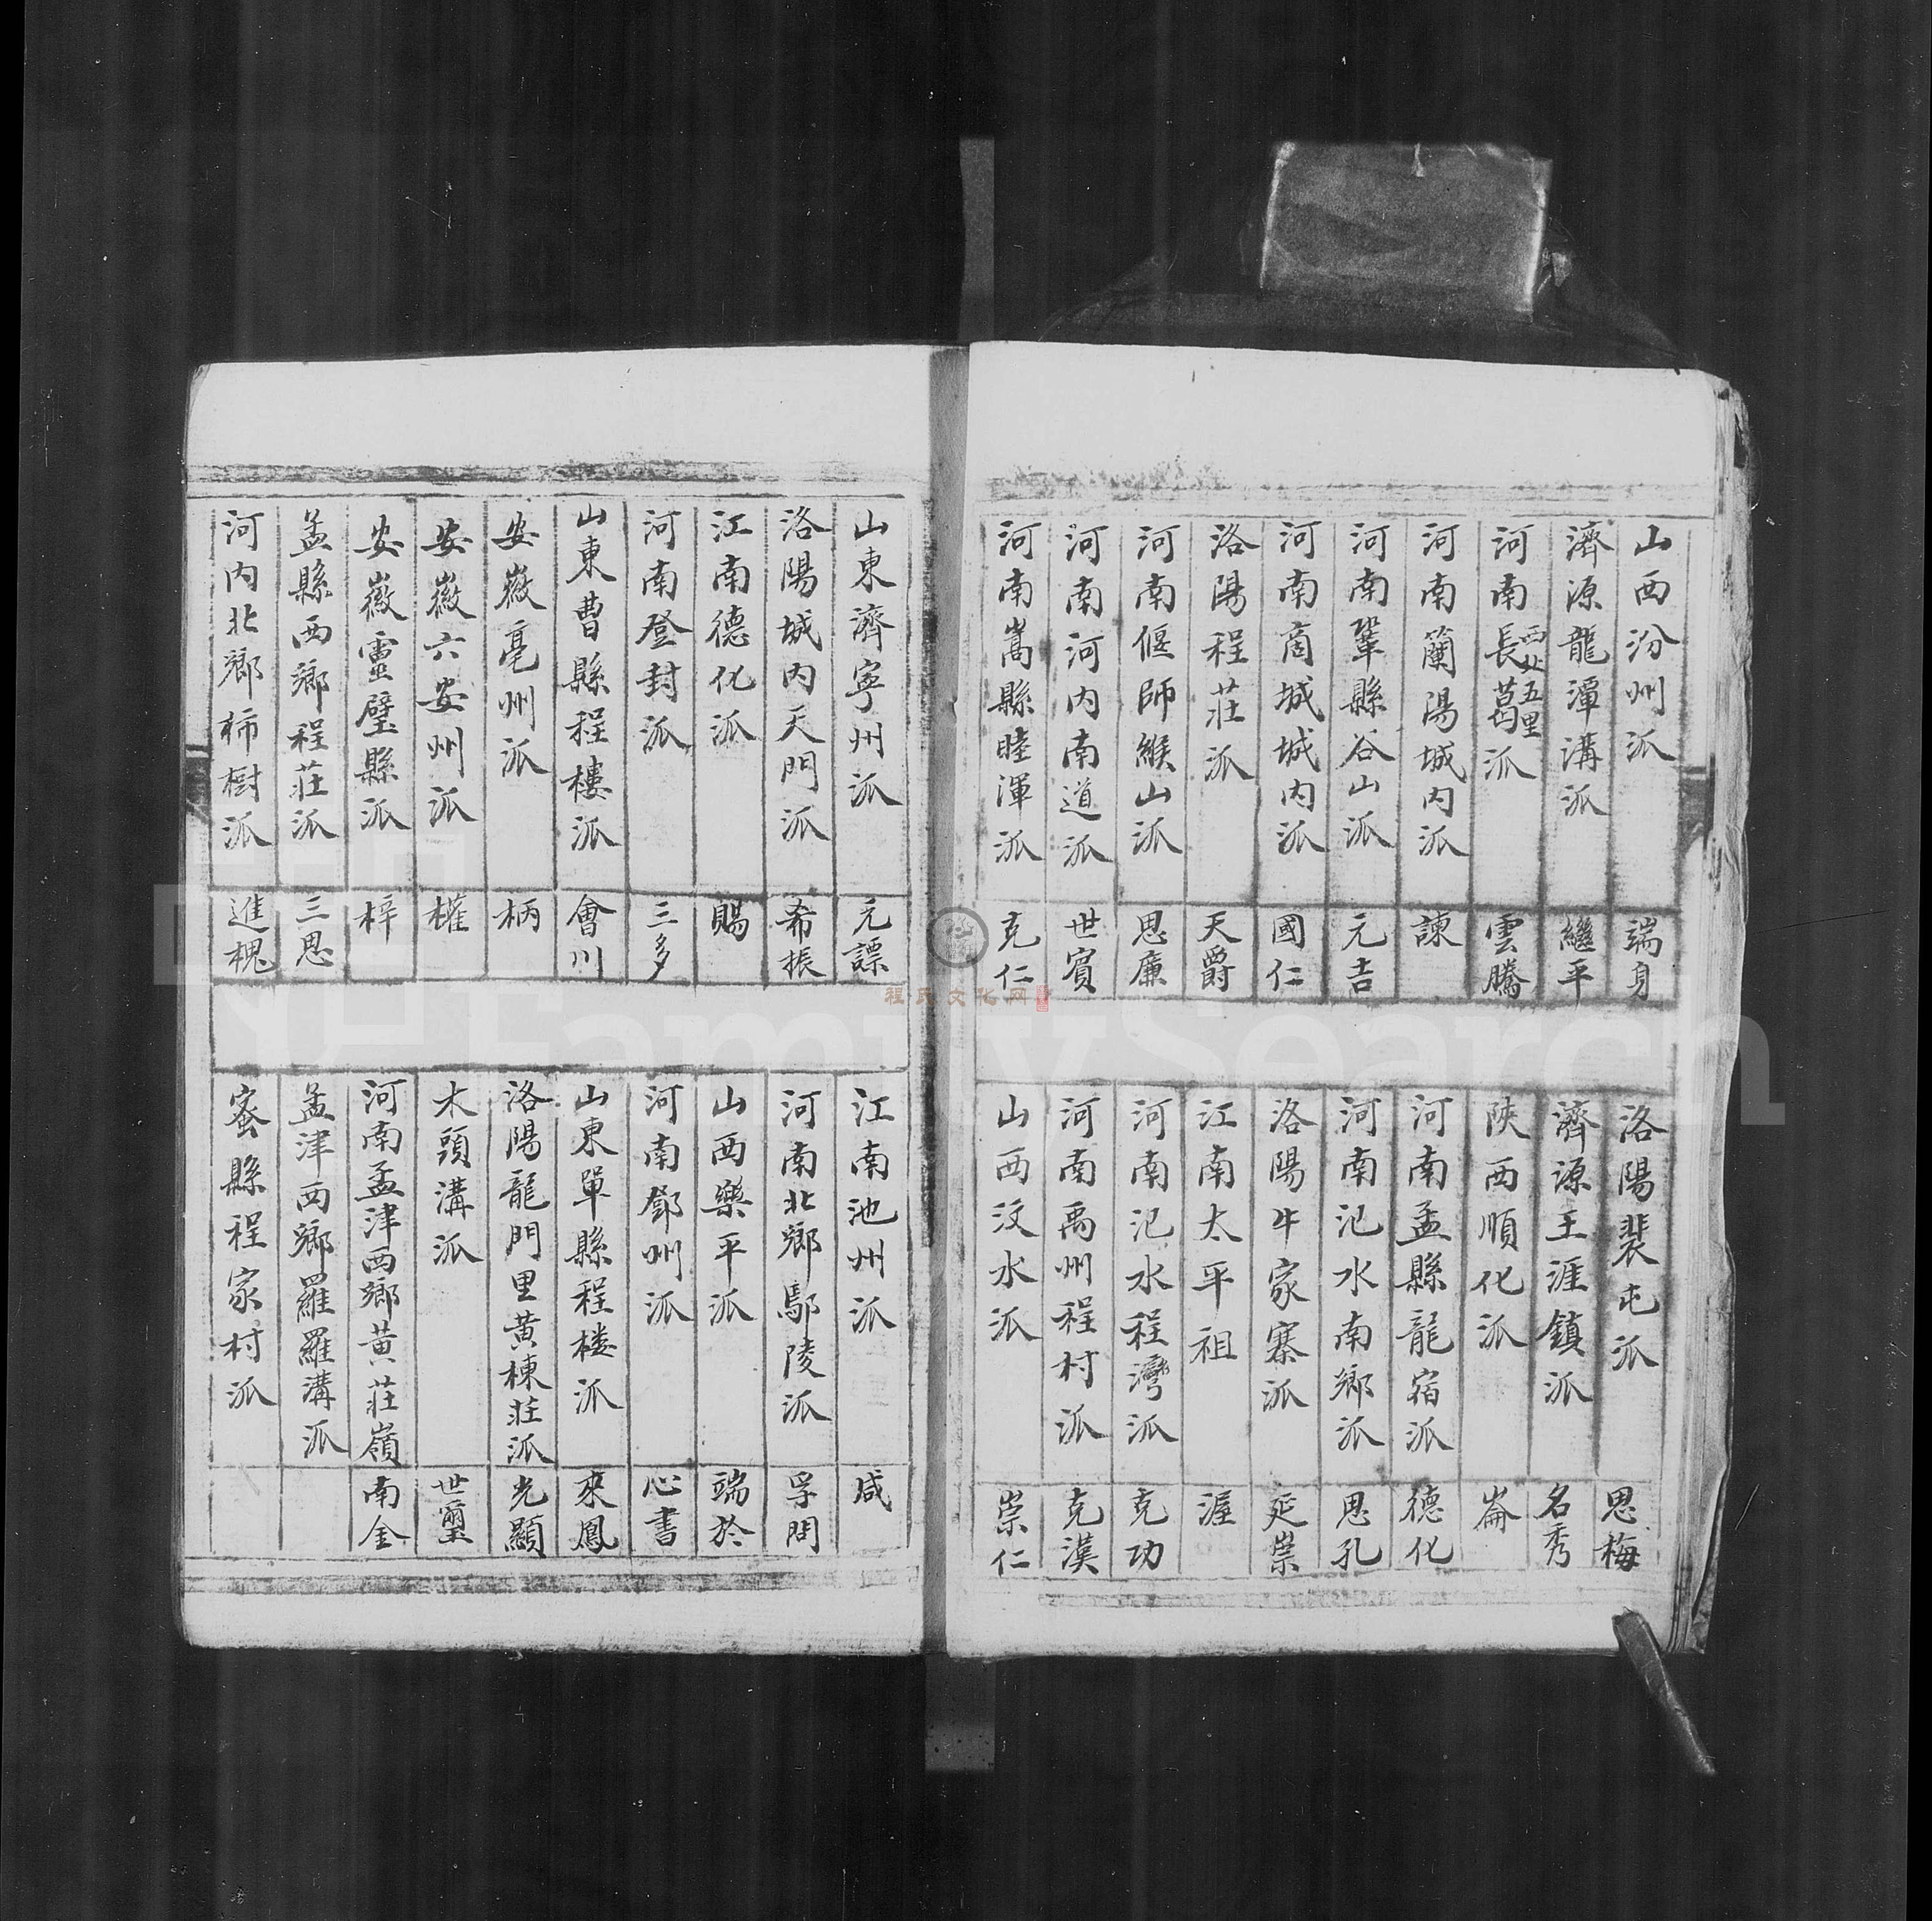 山西汾州派 端身
濟源龍潭溝派 繼平
河南長葛西北五里派 雲騰
河南蘭陽城内派 諫
河南鞏縣谷山派 元吉
河南商城城内派 國仁
洛陽程莊派 天爵
河南偃師緱山派 思廉
河南河内南道派 世賓
河南嵩縣睦渾派 克仁
洛陽裴屯派 思梅
濟源王涯鎮派 名秀
陝西順化派 崙
河南孟縣龍宿派 德化
河南汜水南鄉派 思孔
洛陽牛家寨派 延崇
江南太平祖 渥
河南汜水程灣派 克功
河南禹州程村派 克漢
山西汶水派 崇仁
山東濟寧州派 元謤
洛陽城内天門派 希振
江南德化派 賜
河南登封派 三多
山東曹縣程樓派 會川
安徽亳州派 柄
安徽六安州派 權
安徽靈璧縣派 梓
孟縣西鄉程莊派 三思
河内北鄉柿樹派 進槐
江南池州派 咸
河南北鄉鄢陵派 孚閏
山西樂平派 端於
河南鄧州派 心書
山東單縣程楼派 來鳳
洛陽龍門里黄棟莊派 光顯
木頭溝派 世璽
河南孟津西鄉黄莊嶺 南金
孟津西鄉羅羅溝派
宻縣程家村派
程氏文化网
FamilySearch